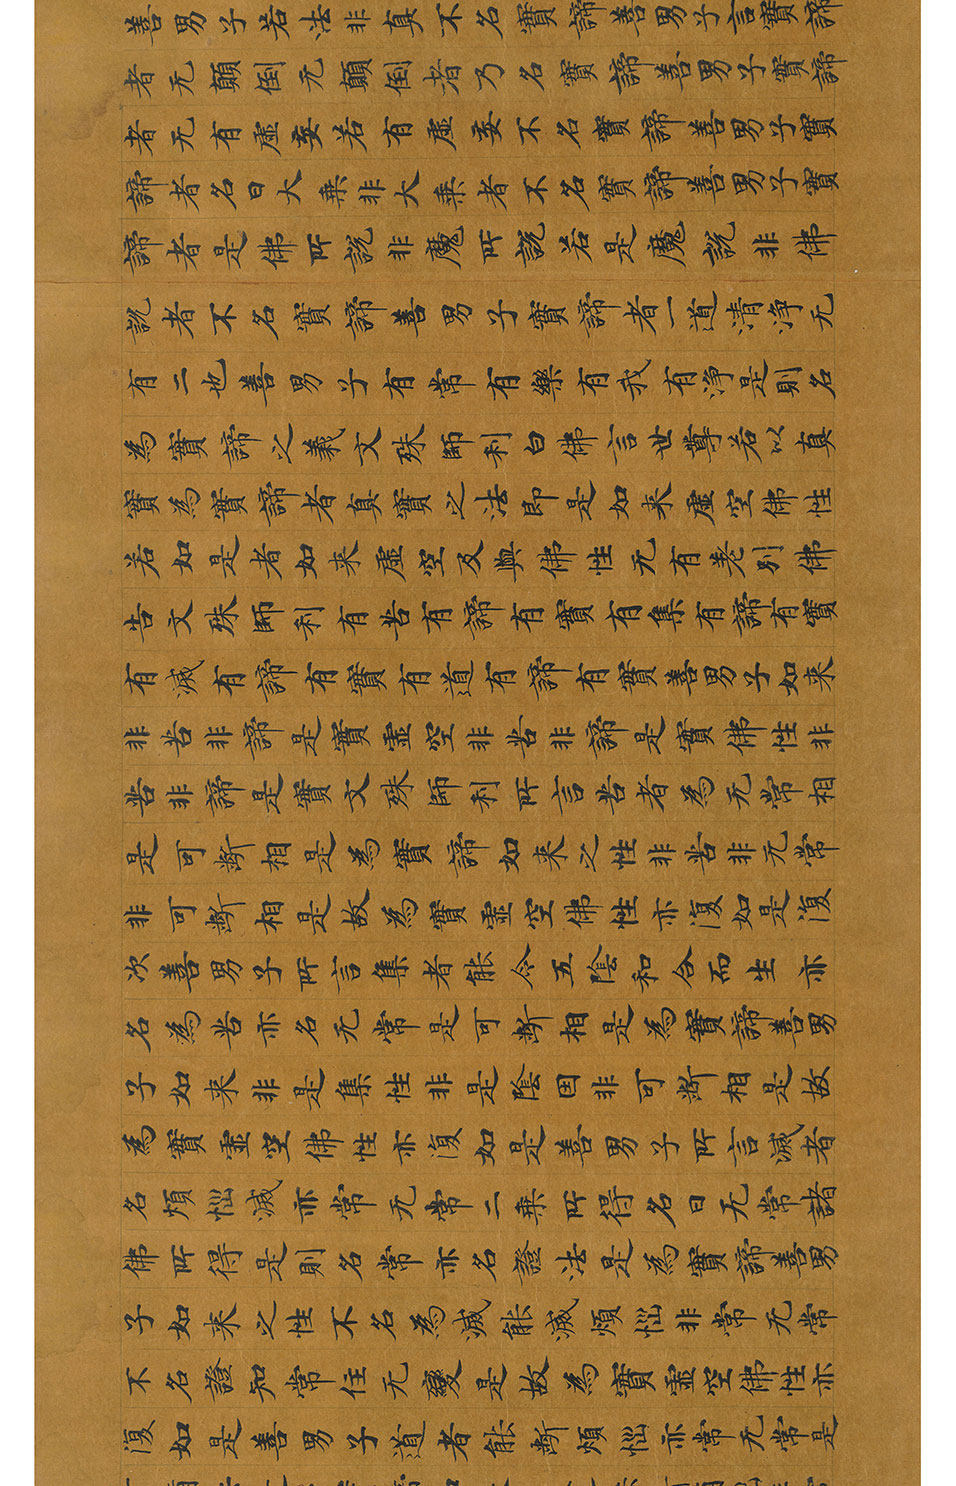 善男子若法非真不名實諦善男子言實諦
者无顛倒无顛倒者乃名實諦善男子實諦
者无有虛妄若有虛妄不名實諦善男子實
諦者名曰大乗非大乗者不名實諦善男子實
諦者是佛所說非魔所說若是魔說非佛
說者不名實諦善男子實諦者一道清淨无
有二也善男子有常有樂有我有淨是則名
為實諦之義文殊師利白佛言世尊若以真
實為實諦者真實之法即是如来虛空佛性
若如是者如来虛空及與佛性无有差別佛
告文殊師利有苦有諦有實有集有諦有實
有滅有諦有實有道有諦有實善男子如来
非苦非諦是實虛空非苦非諦是實佛性非
苦非諦是實文殊師利所言苦者為无常相
是可斷相是為實諦如来之性非苦非无常
非可斷相是故為實虛空佛性亦復如是復
次善男子所言集者能令五陰和合而生亦
名為苦亦名无常是可斷相是為實諦善男
子如来非是集性非是陰因非可斷相是故
為實虛空佛性亦復如是善男子所言滅者
名煩惱滅亦常无常二乗所得名曰无常諸
佛所得是則名常亦名證法是為實諦善男
子如来之性不名為滅能滅煩惱非常无常
不名證知常住无變是故為實虛空佛性亦
復如是善男子道者能斷煩惱亦常无常是